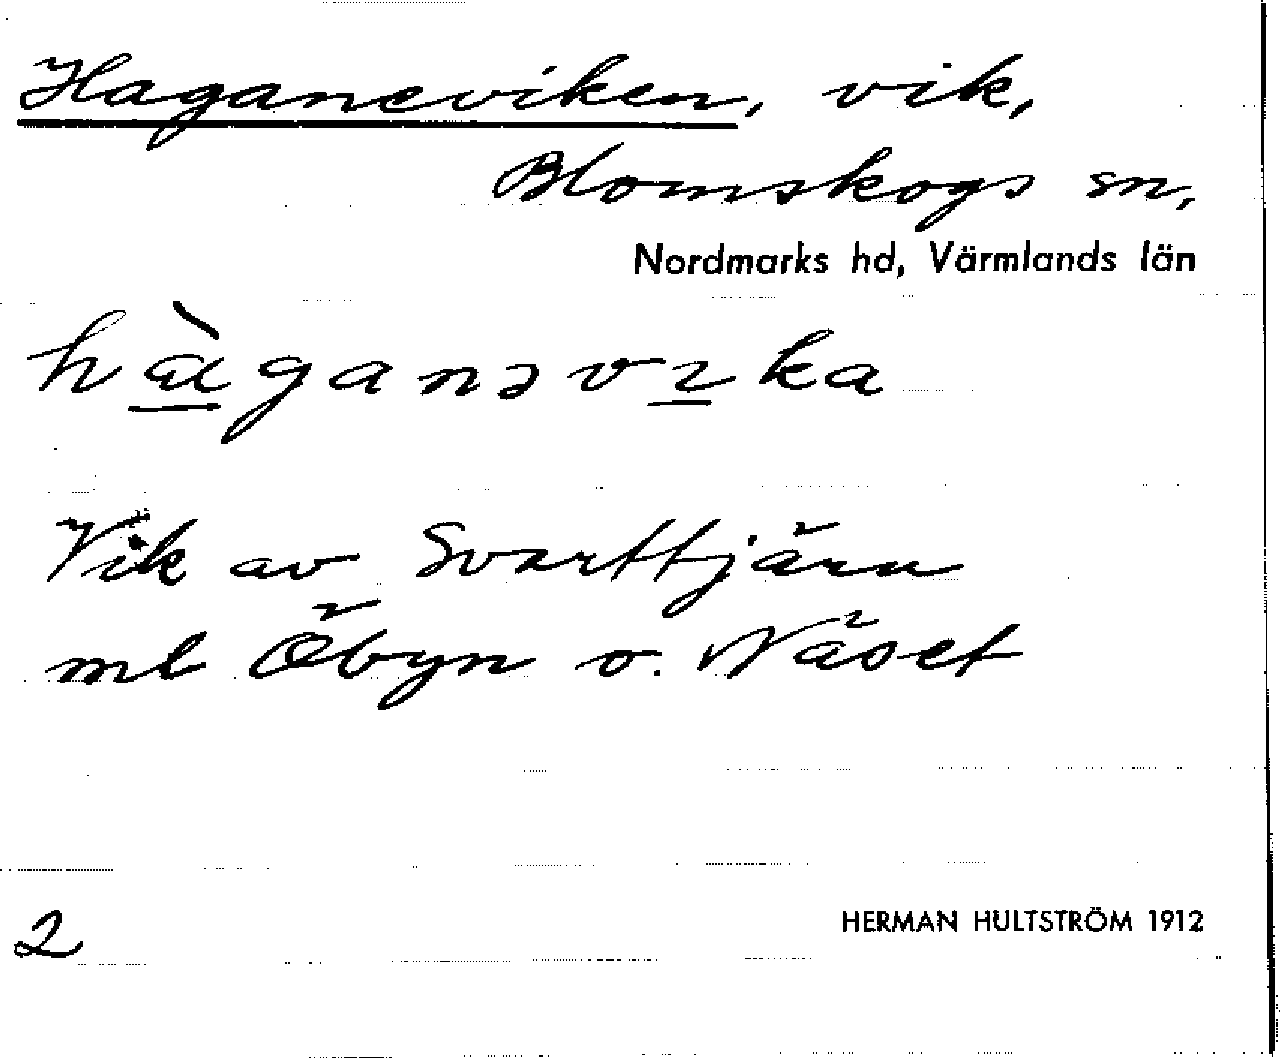 Haganeviken, vik,
Blomskogs sn,
Nordmarks hd, Värmlands län
hàganəvıka
Vik av Svarttjärn
ml Öbyn o. Näset
2
HERMAN HULTSTRÖM 1912